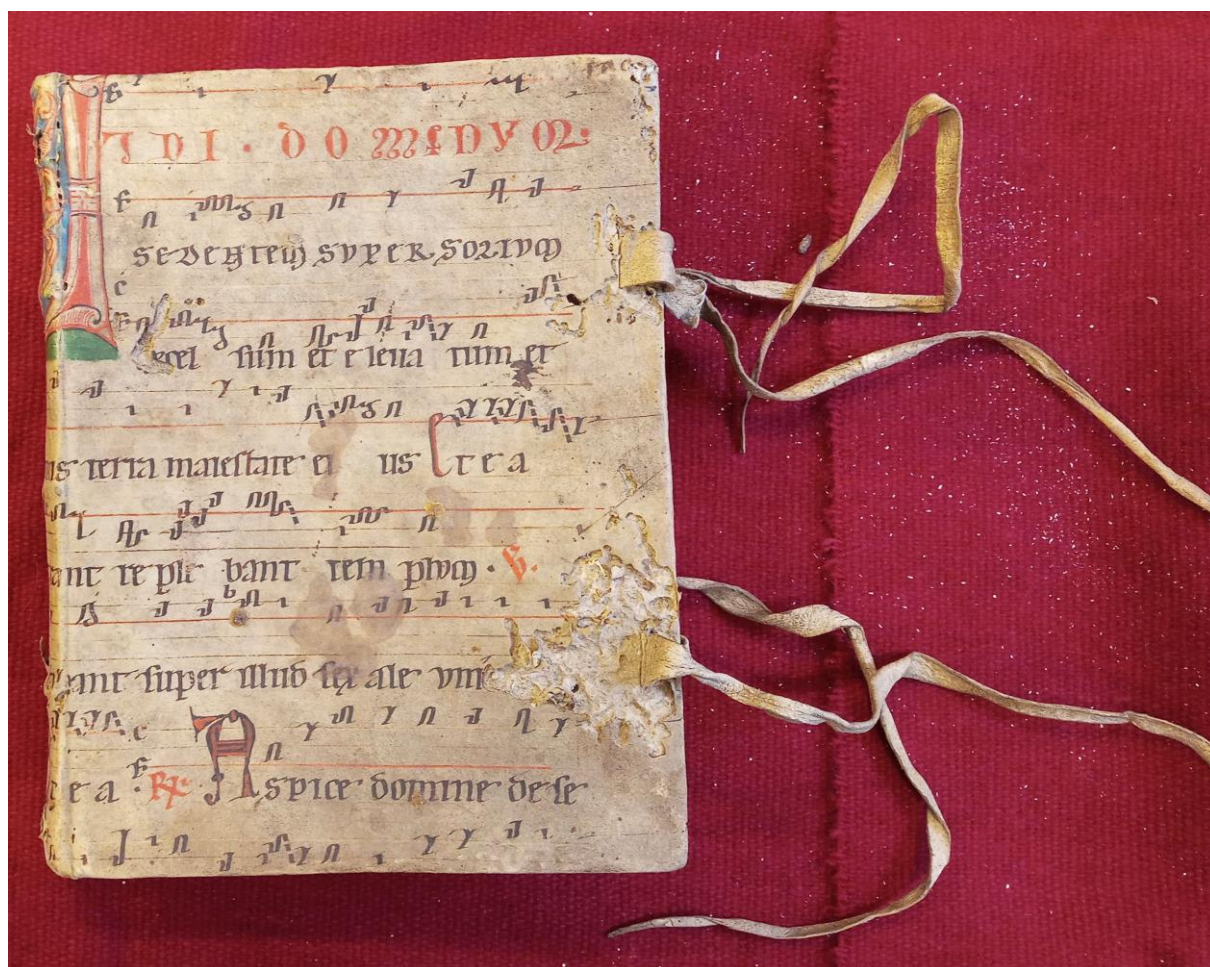 IDI · DOMINVM ·
SEDENTEM SVPER SOLIVM
xcel sum et e leua tum et
is terra maiestate ei us Et e a
ant re ple bant tem plum · V.
ant super illud sex ale vni
e a · R. Aspice domine de se